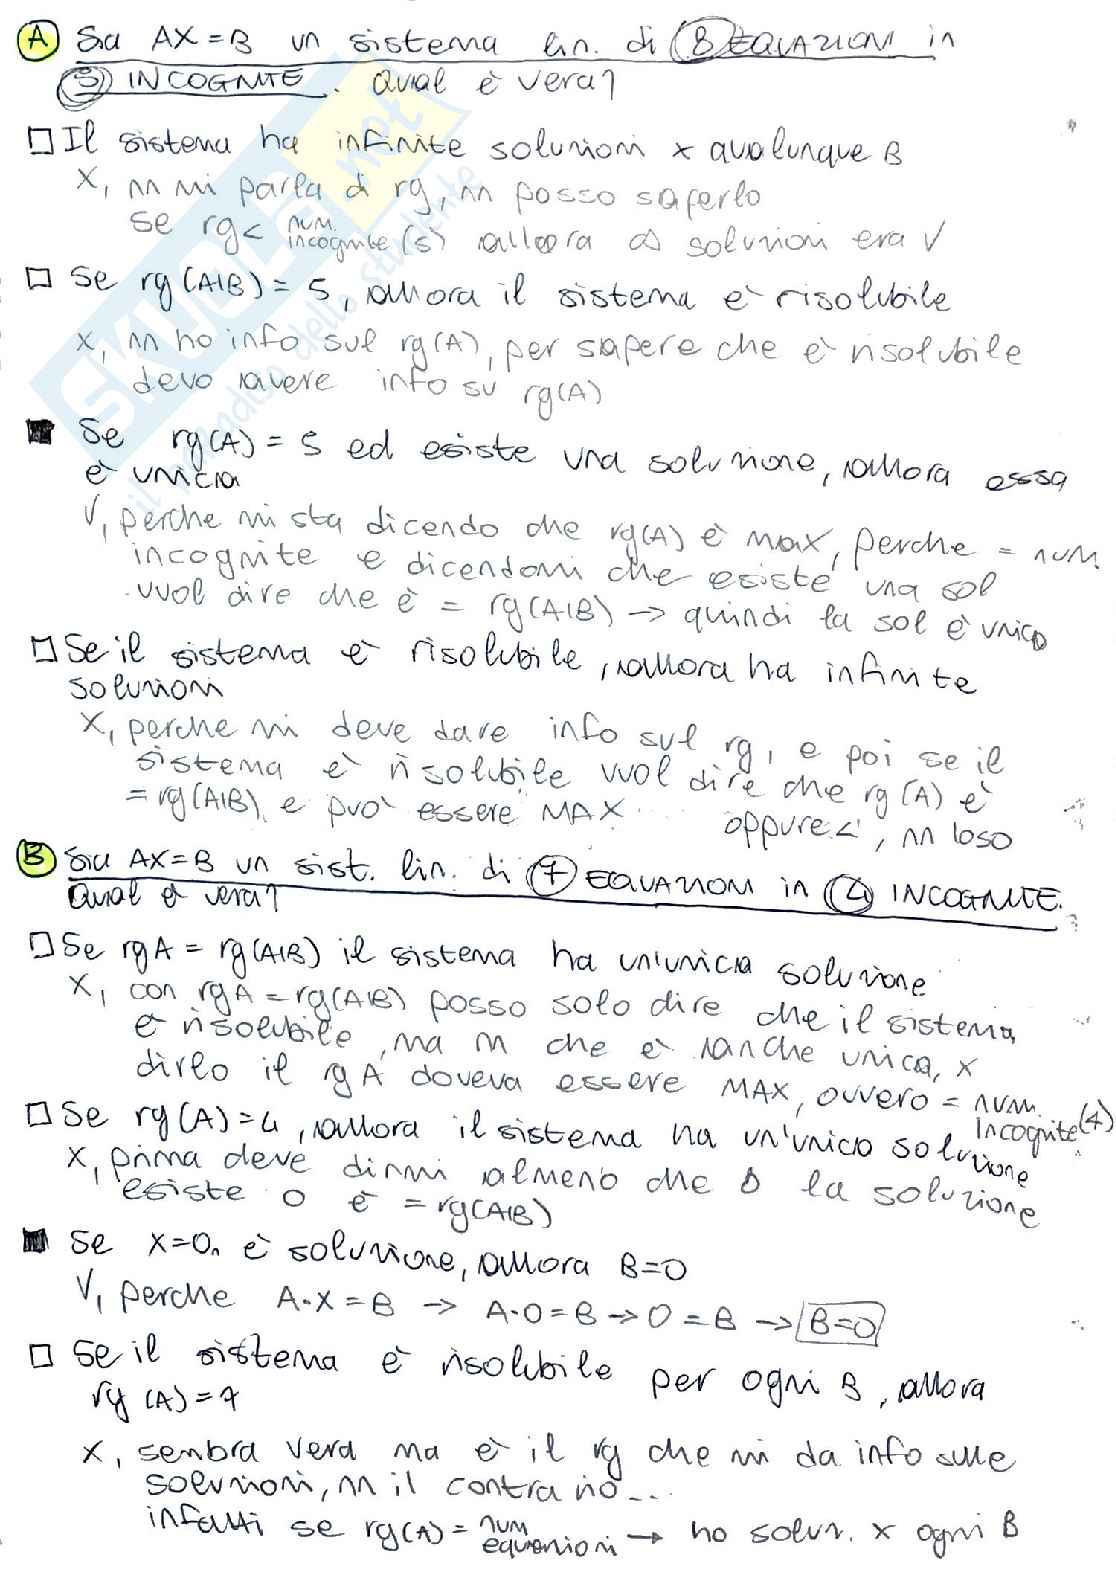 A Sia AX=B un sistema lin. di 8 EQUAZIONI in
5 INCOGNITE. Qual è vera?
□ Il sistema ha infinite soluzioni x qualunque B
X, nn mi parla di rg, nn posso saperlo
se rg < num. incognite (5) allora ∞ soluzioni era V
□ Se rg(A|B) = 5, allora il sistema è risolubile
X, nn ho info sul rg(A), per sapere che è risolubile
devo avere info su rg(A)
■ Se rg(A) = 5 ed esiste una soluzione, allora essa
è unica
V, perche mi sta dicendo che rg(A) è max, perche = num
incognite e dicendomi che esiste una sol
vuol dire che è = rg(A|B) → quindi la sol è unica
□ Se il sistema è risolubile, allora ha infinite
soluzioni
X, perche mi deve dare info sul rg, e poi se il
sistema è risolubile vuol dire che rg(A) è
= rg(A|B), e può essere MAX oppure <, nn lo so
B Sia AX=B un sist. lin. di 7 EQUAZIONI in 4 INCOGNITE.
Qual è vera?
□ Se rgA = rg(A|B) il sistema ha un'unica soluzione
X, con rgA = rg(A|B) posso solo dire che il sistema
è risolubile, ma nn che è anche unica, x
dirlo il rgA doveva essere MAX, ovvero = num. incognite (4)
□ Se rg(A)=4, allora il sistema ha un'unica soluzione
X, prima deve dirmi almeno che la soluzione
esiste o è = rg(A|B)
■ Se X=0n è soluzione, allora B=0
V, perche A·X=B → A·0=B → 0=B → B=0
□ Se il sistema è risolubile per ogni B, allora
rg (A)=7
X, sembra vera ma è il rg che mi da info sulle
soluzioni, nn il contrario...
infatti se rg(A) = num equazioni → ho soluz. x ogni B
SKUOLA.net
il mondo dello studente